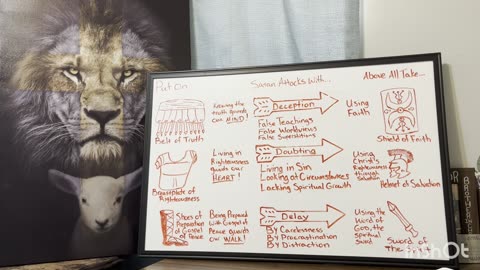 Put On
Satan Attacks With...
Above All Take...
Knowing the
truth guards
our MIND!
Deception
False Teachings
False Worldviews
False Superstitions
Using
Faith
Belt of Truth
Shield of Faith
Living in
Righteousness
guards our
HEART!
Doubting
Living in Sin
Looking at Circumstances
Lacking Spiritual Growth
Using
Christ's
Righteousness
through
Salvation
Breastplate of
Righteousness
Helmet of Salvation
Shoes of
Preparation
of Gospel
of Peace
Being Prepared
with Gospel of
Peace guards
our WALK!
Delay
By Carelessness
By Procrastination
By Distraction
Using the
Word of
God, the
Spiritual
Sword
Sword of
The